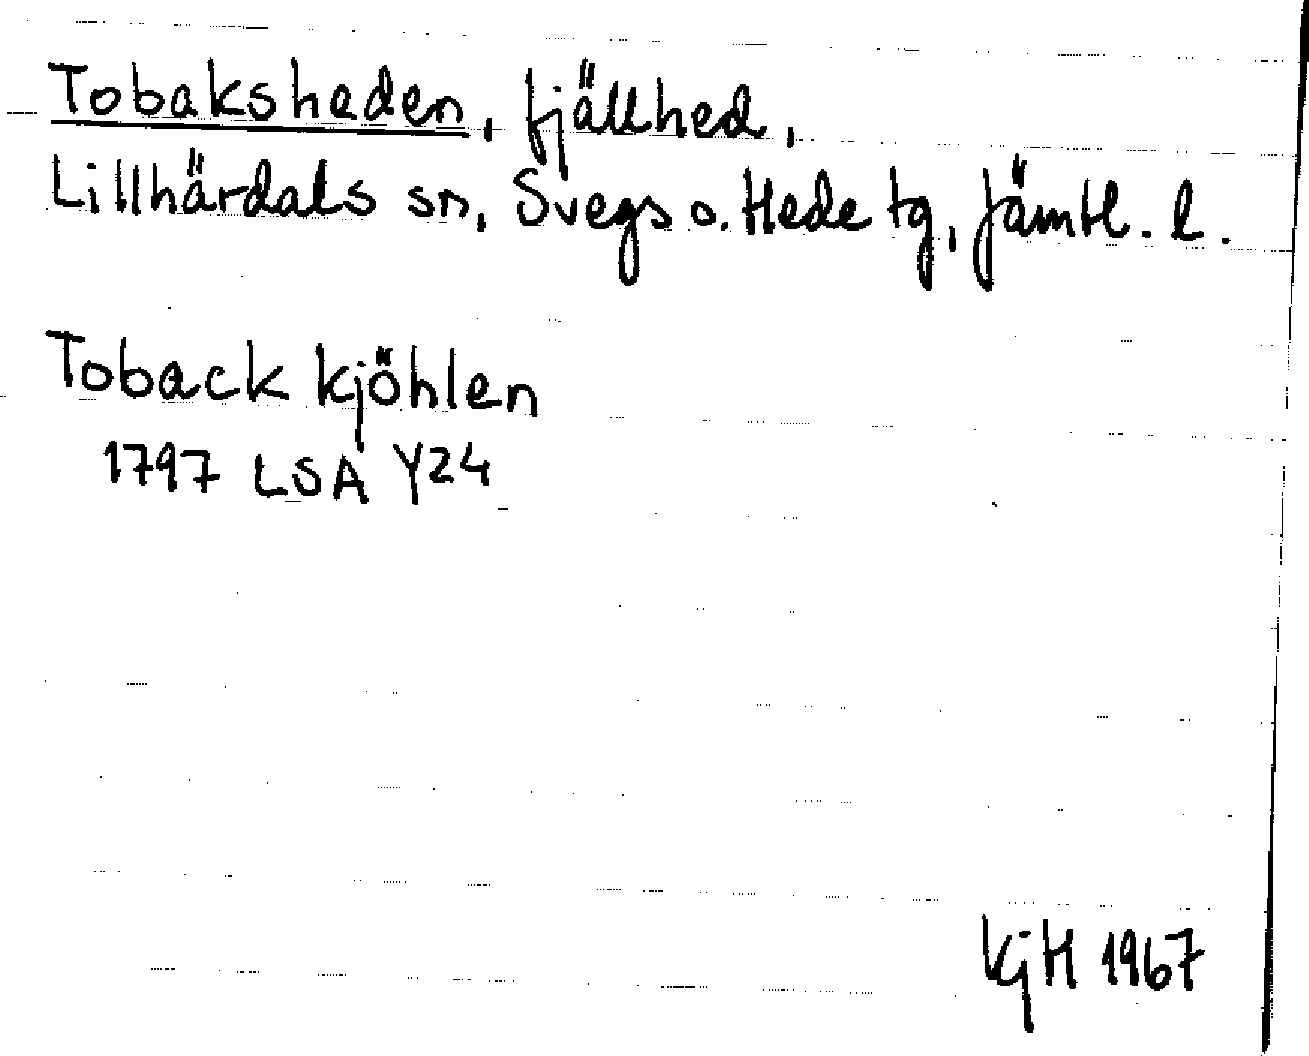 Tobaksheden, fjällhed,
Lillhärdals sn, Svegs o. Hede tg, Jämtl. l.
Toback kjöhlen
1797 LSA Y24
KjH 1967